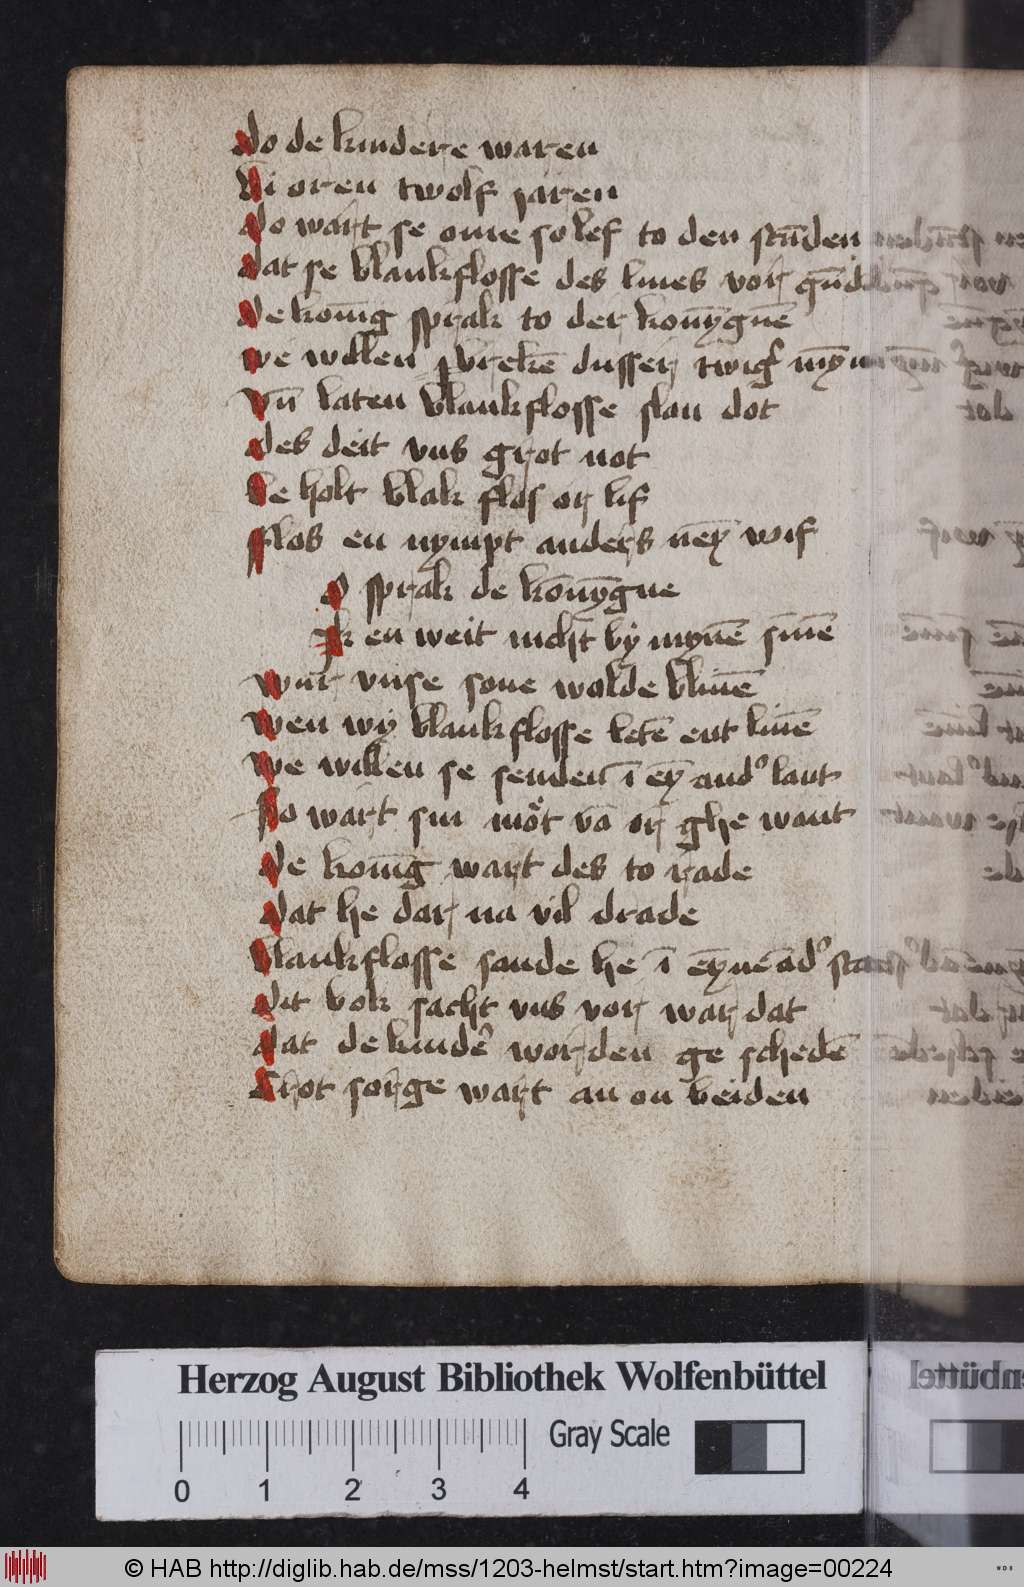 do de kindere waren
bi oren twolf jaren
do wart se ome so lef to den stūden
dat se blankflosse des liues vor gūd
de konīg sprak to der konȳgnē
we willen brekē dusser twig mȳn
vn̄ laten blankflosse slan dot
des deit vns grot not
be holt blak flos or lif
flos en nympt anders nen wif
O sprak de kōnȳgne
Ik en weit nicht by mynē sinē
wur vnse sone wolde bliuē
wen wy blankflosse letē ent liuē
we willen se senden ī eȳ and' lant
So wart sin möt vā or ghe want
de konīg wart des to rade
dat he dar na vil drade
blankflosse sande he ī eȳnē ād' stat
dit bok sacht vns vor war dat
dat de kinde' worden ge schedē
Grot sorge wart an on beiden
Herzog August Bibliothek Wolfenbüttel
Gray Scale
0 1 2 3 4
© HAB http://diglib.hab.de/mss/1203-helmst/start.htm?image=00224